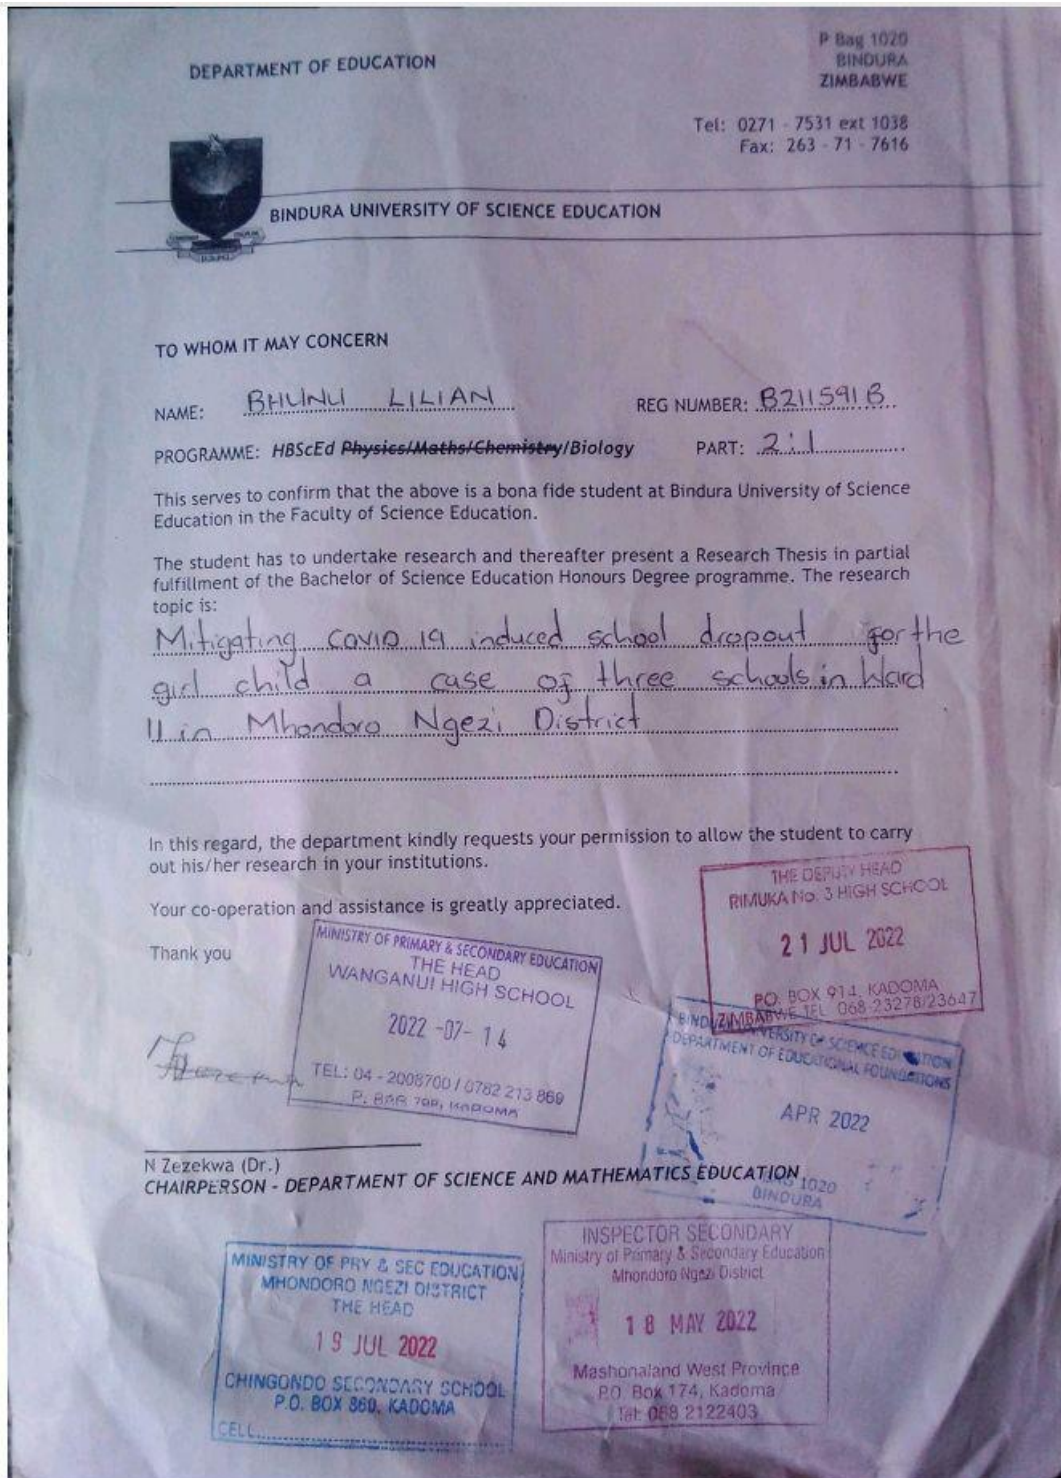 P Bag 1020
BINDURA
ZIMBABWE
DEPARTMENT OF EDUCATION
Tel: 0271 - 7531 ext 1038
Fax: 263 - 71 - 7616
BINDURA UNIVERSITY OF SCIENCE EDUCATION
TO WHOM IT MAY CONCERN
NAME: BHUNU LILIAN REG NUMBER: B211591B
PROGRAMME: HBScEd Physics/Maths/Chemistry/Biology PART: 2:1
This serves to confirm that the above is a bona fide student at Bindura University of Science
Education in the Faculty of Science Education.
The student has to undertake research and thereafter present a Research Thesis in partial
fulfillment of the Bachelor of Science Education Honours Degree programme. The research
topic is:
Mitigating COVID 19 induced school dropout for the
girl child a case of three schools in Ward
11 in Mhondoro Ngezi District
In this regard, the department kindly requests your permission to allow the student to carry
out his/her research in your institutions.
Your co-operation and assistance is greatly appreciated.
Thank you
THE DEPUTY HEAD
RIMUKA No. 3 HIGH SCHOOL
21 JUL 2022
P.O. BOX 914, KADOMA
ZIMBABWE TEL 068-23278/23647
MINISTRY OF PRIMARY & SECONDARY EDUCATION
THE HEAD
WANGANUI HIGH SCHOOL
2022 -07- 14
TEL: 04 - 2008700 / 0782 213 869
P. BAG 700, KADOMA
BINDURA UNIVERSITY OF SCIENCE EDUCATION
DEPARTMENT OF EDUCATIONAL FOUNDATIONS
APR 2022
1020
BINDURA
N Zezekwa (Dr.)
CHAIRPERSON - DEPARTMENT OF SCIENCE AND MATHEMATICS EDUCATION
MINISTRY OF PRY & SEC EDUCATION
MHONDORO NGEZI DISTRICT
THE HEAD
19 JUL 2022
CHINGONDO SECONDARY SCHOOL
P.O. BOX 860, KADOMA
CELL
INSPECTOR SECONDARY
Ministry of Primary & Secondary Education
Mhondoro Ngezi District
18 MAY 2022
Mashonaland West Province
P.O. Box 174, Kadoma
Tel: 068 2122403